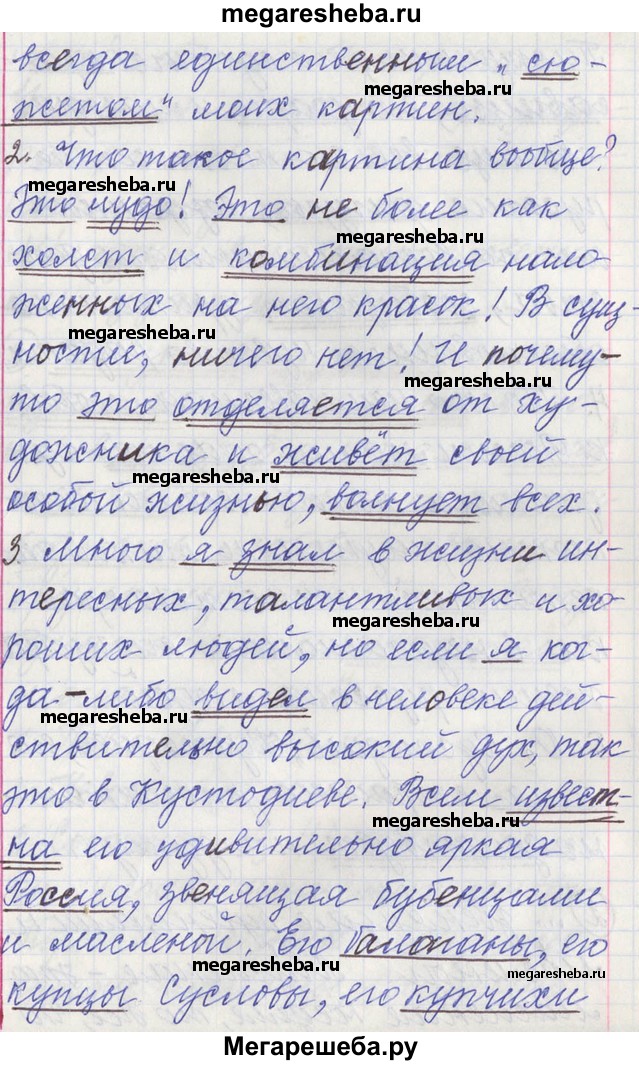 megaresheba.ru
всегда единственным „сю-
megaresheba.ru
жетом" моих картин.
2. Что такое картина вообще?
megaresheba.ru
Это чудо! Это не более как
megaresheba.ru
холст и комбинация нало
женных на него красок! В сущ-
megaresheba.ru
ности, ничего нет! И почему-
megaresheba.ru
то это отделяется от ху-
дожника и живёт своей
megaresheba.ru
особой жизнью, волнует всех.
3 Много я знал в жизни ин-
megaresheba.ru
тересных, талантливых и хо
роших людей, но если я ког-
да-либо видел в человеке дей-
megaresheba.ru
ствительно высокий дух, так
это в Кустодиеве. Всем извест-
megaresheba.ru
на его удивительно яркая
megaresheba.ru
Россия, звенящая бубенцами
и масленой. Его балаганы, его
megaresheba.ru
megaresheba.ru
купцы Сусловы, его купчихи
Мегарешеба.ру